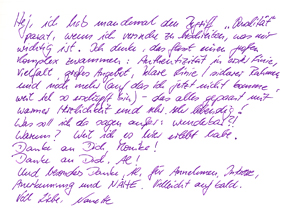 Hej, ich hab manchmal den Begriff „Qualität"
parat, wenn ich versuche zu beschreiben, was mir
wichtig ist. Ich denke, das fasst einen großen
Komplex zusammen: Authentizität in
Vielfalt, großes Angebot, klare Linie / Rahmen
und noch mehr (auf das ich jetzt nicht komme,
weil ich so bin) – das alles gepaart mit
warmer Herzlichkeit und sehr lebendig!
Was soll ich da sagen außer: wunderbar?!
Warum? Weil ich es hier erlebt habe.
Danke an Dich,
Danke an Dich, Al!
Und besonders Danke, Al, für Annehmen, Interesse,
Anerkennung und NÄHE. Vielleicht auf bald.
Voll Liebe. Nanette